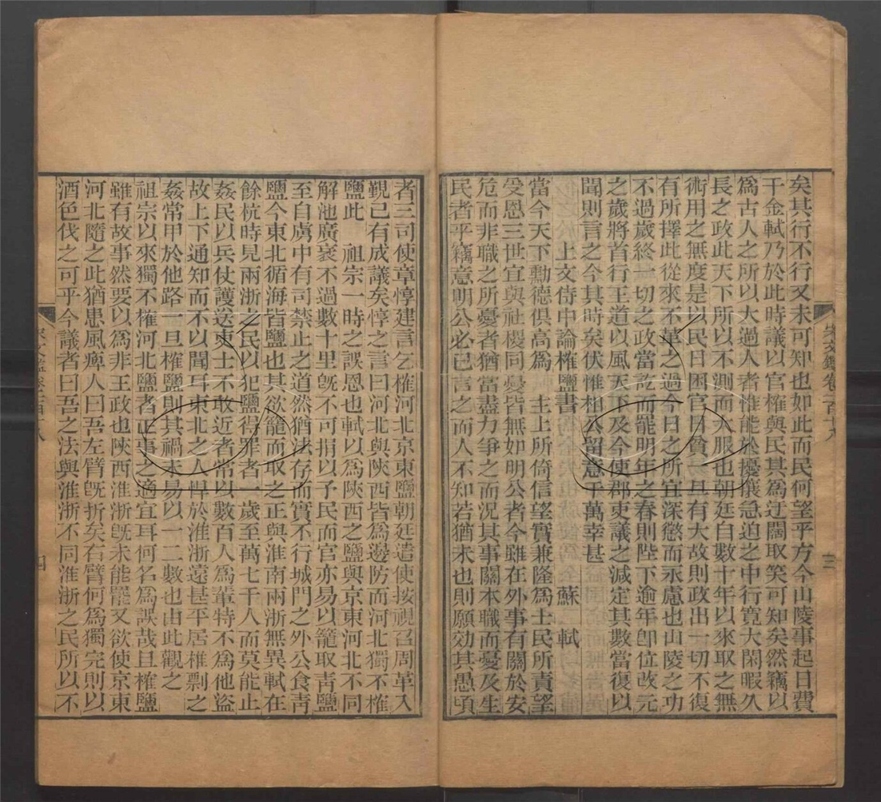 矣其行不行又未可知也如此而民何望乎方今山陵事起日費
千金軾乃於此時議以官榷與民其為迂闊取笑可知矣然竊以
為古人之所以大過人者惟能於擾攘急迫之中行寬大閑暇久
長之政此天下所以不測而大服也朝廷自數十年以來取之無
術用之無度是以民日困官日貧一旦有大故則政出一切不復
有所擇此從來不革之過今日之所宜深懲而永慮也山陵之功
不過歲終一切之政當訖而罷明年之春則陛下逾年卽位改元
之歲將首行王道以風天下及今使郡吏議之減定其數當復以
聞則言之今其時矣伏惟相公留意千萬幸甚
上文侍中論榷鹽書 蘇軾
當今天下勳德俱高為 主上所倚信望實兼隆為士民所責望
受恩三世宜與社稷同憂皆無如明公者今雖在外事有關於安
危而非職之所憂者猶當盡力爭之而況其事關本職而憂及生
民者乎竊意明公必已言之而人不知若猶未也則願効其愚頃
宋文鑑卷一百十八
三
者三司使章惇建言乞榷河北京東鹽朝廷遣使按視召周革入
覲已有成議矣惇之言曰河北與陝西皆為邊防而河北獨不榷
鹽此 祖宗一時之誤恩也軾以為陝西之鹽與京東河北不同
解池廣袤不過數十里旣不可捐以予民而官亦易以籠取青鹽
至自虜中有司禁止之道然猶法存而實不行城門之外公食青
鹽今東北循海皆鹽也其欲籠而取之正與淮南兩浙無異軾在
餘杭時見兩浙之民以犯鹽得罪者一歲至萬七千人而莫能止
姦民以兵仗護送吏士不敢近者常以數百人為輩特不為他盜
故上下通知而不以聞耳東北之人悍於淮浙遠甚平居椎剽之
姦常甲於他路一旦榷鹽則其禍未易以一二數也由此觀之
祖宗以來獨不榷河北鹽者正事之適宜耳何名為誤哉且榷鹽
雖有故事然要以為非王政也陝西淮浙旣未能罷又欲使京東
河北隨之此猶患風痺人曰吾左臂旣折矣右臂何為獨完則以
酒色伐之可乎今議者曰吾之法與淮浙不同淮浙之民所以不
宋文鑑卷一百十八
四